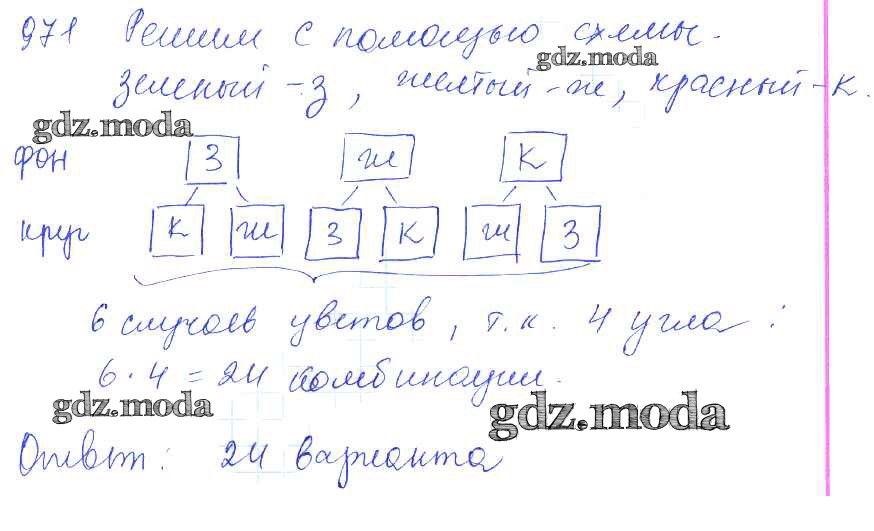 971 Решим с помощью схемы.
gdz.moda
зеленый - з, желтый - ж, красный - к.
gdz.moda
фон З ж К
круг К ж З К ж З
6 случаев цветов, т.к. 4 угла:
6 · 4 = 24 комбинации.
gdz.moda
gdz.moda
Ответ: 24 варианта